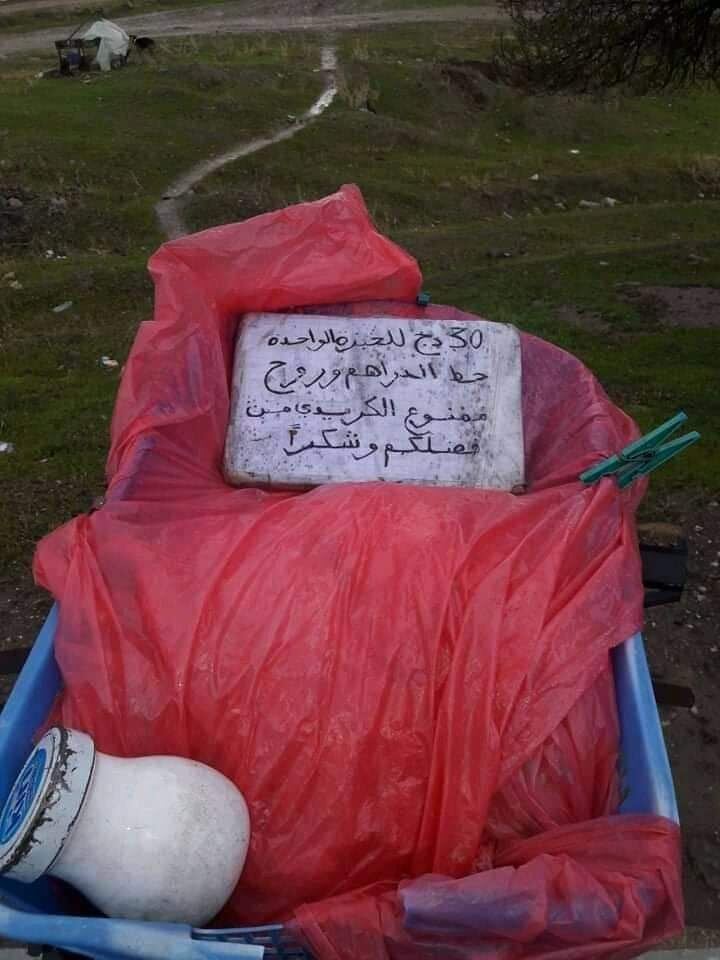 30 دج للخبزة الواحدة
حط الدراهم وروح
ممنوع الكريدي من
فضلكم وشكراً